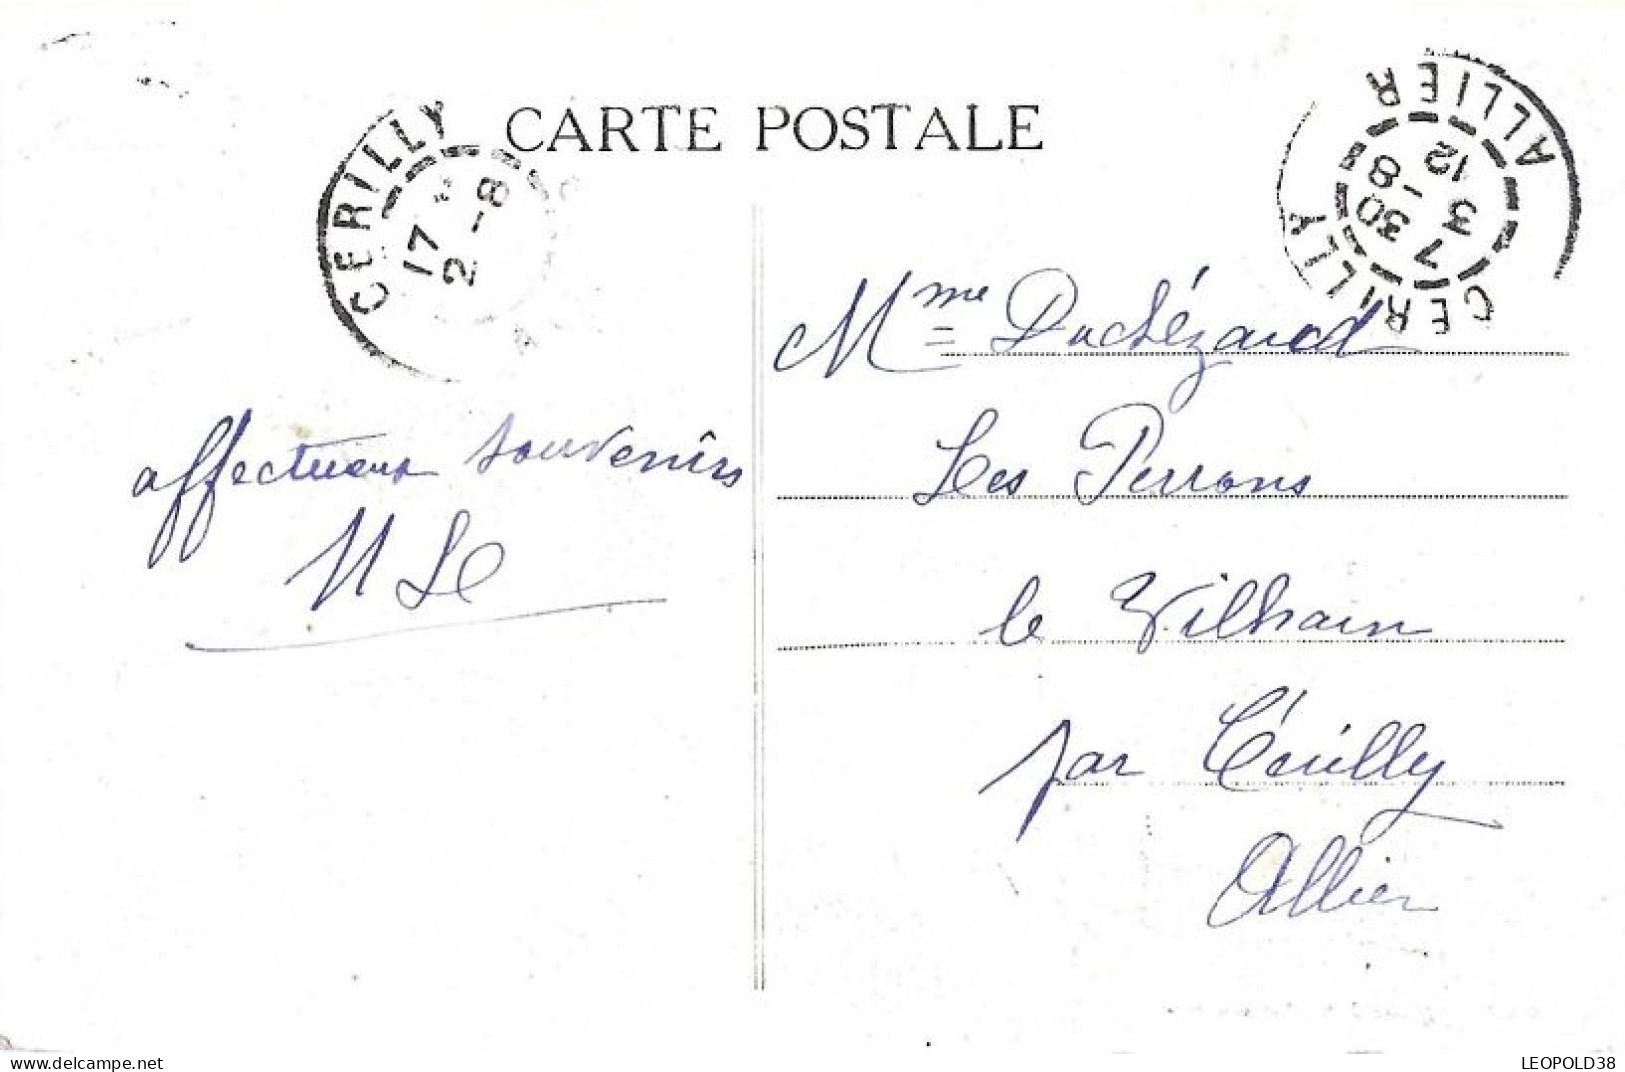 CARTE POSTALE
CERILLY
17
2 -8
CERILLY ALLIER
7 30
3 -8
12
affectueux souvenirs
Mme Duchézaud
Les Perrons
le Vilhain
par Cérilly
Allier
delcampe.net
LEOPOLD38